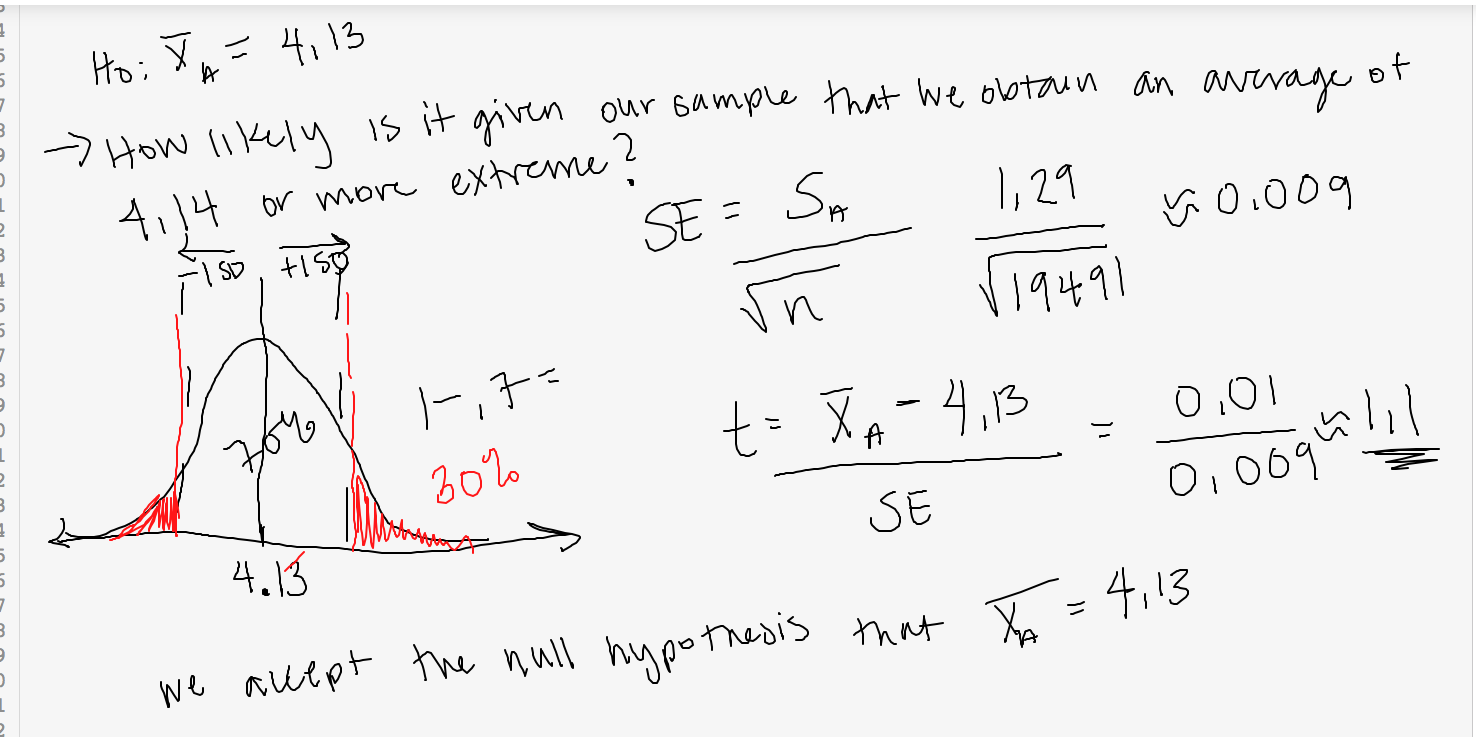 Ho: X̄A = 4.13
→ How likely is it given our sample that we obtain an average of
4.14 or more extreme?
SE = SA / √n 1.29 / √19491 ≈ 0.009
-1SD +1SD
70%
1-.7=
30%
t = X̄A - 4.13 / SE = 0.01 / 0.009 ≈ 1.1
4.13
we accept the null hypothesis that X̄A = 4.13